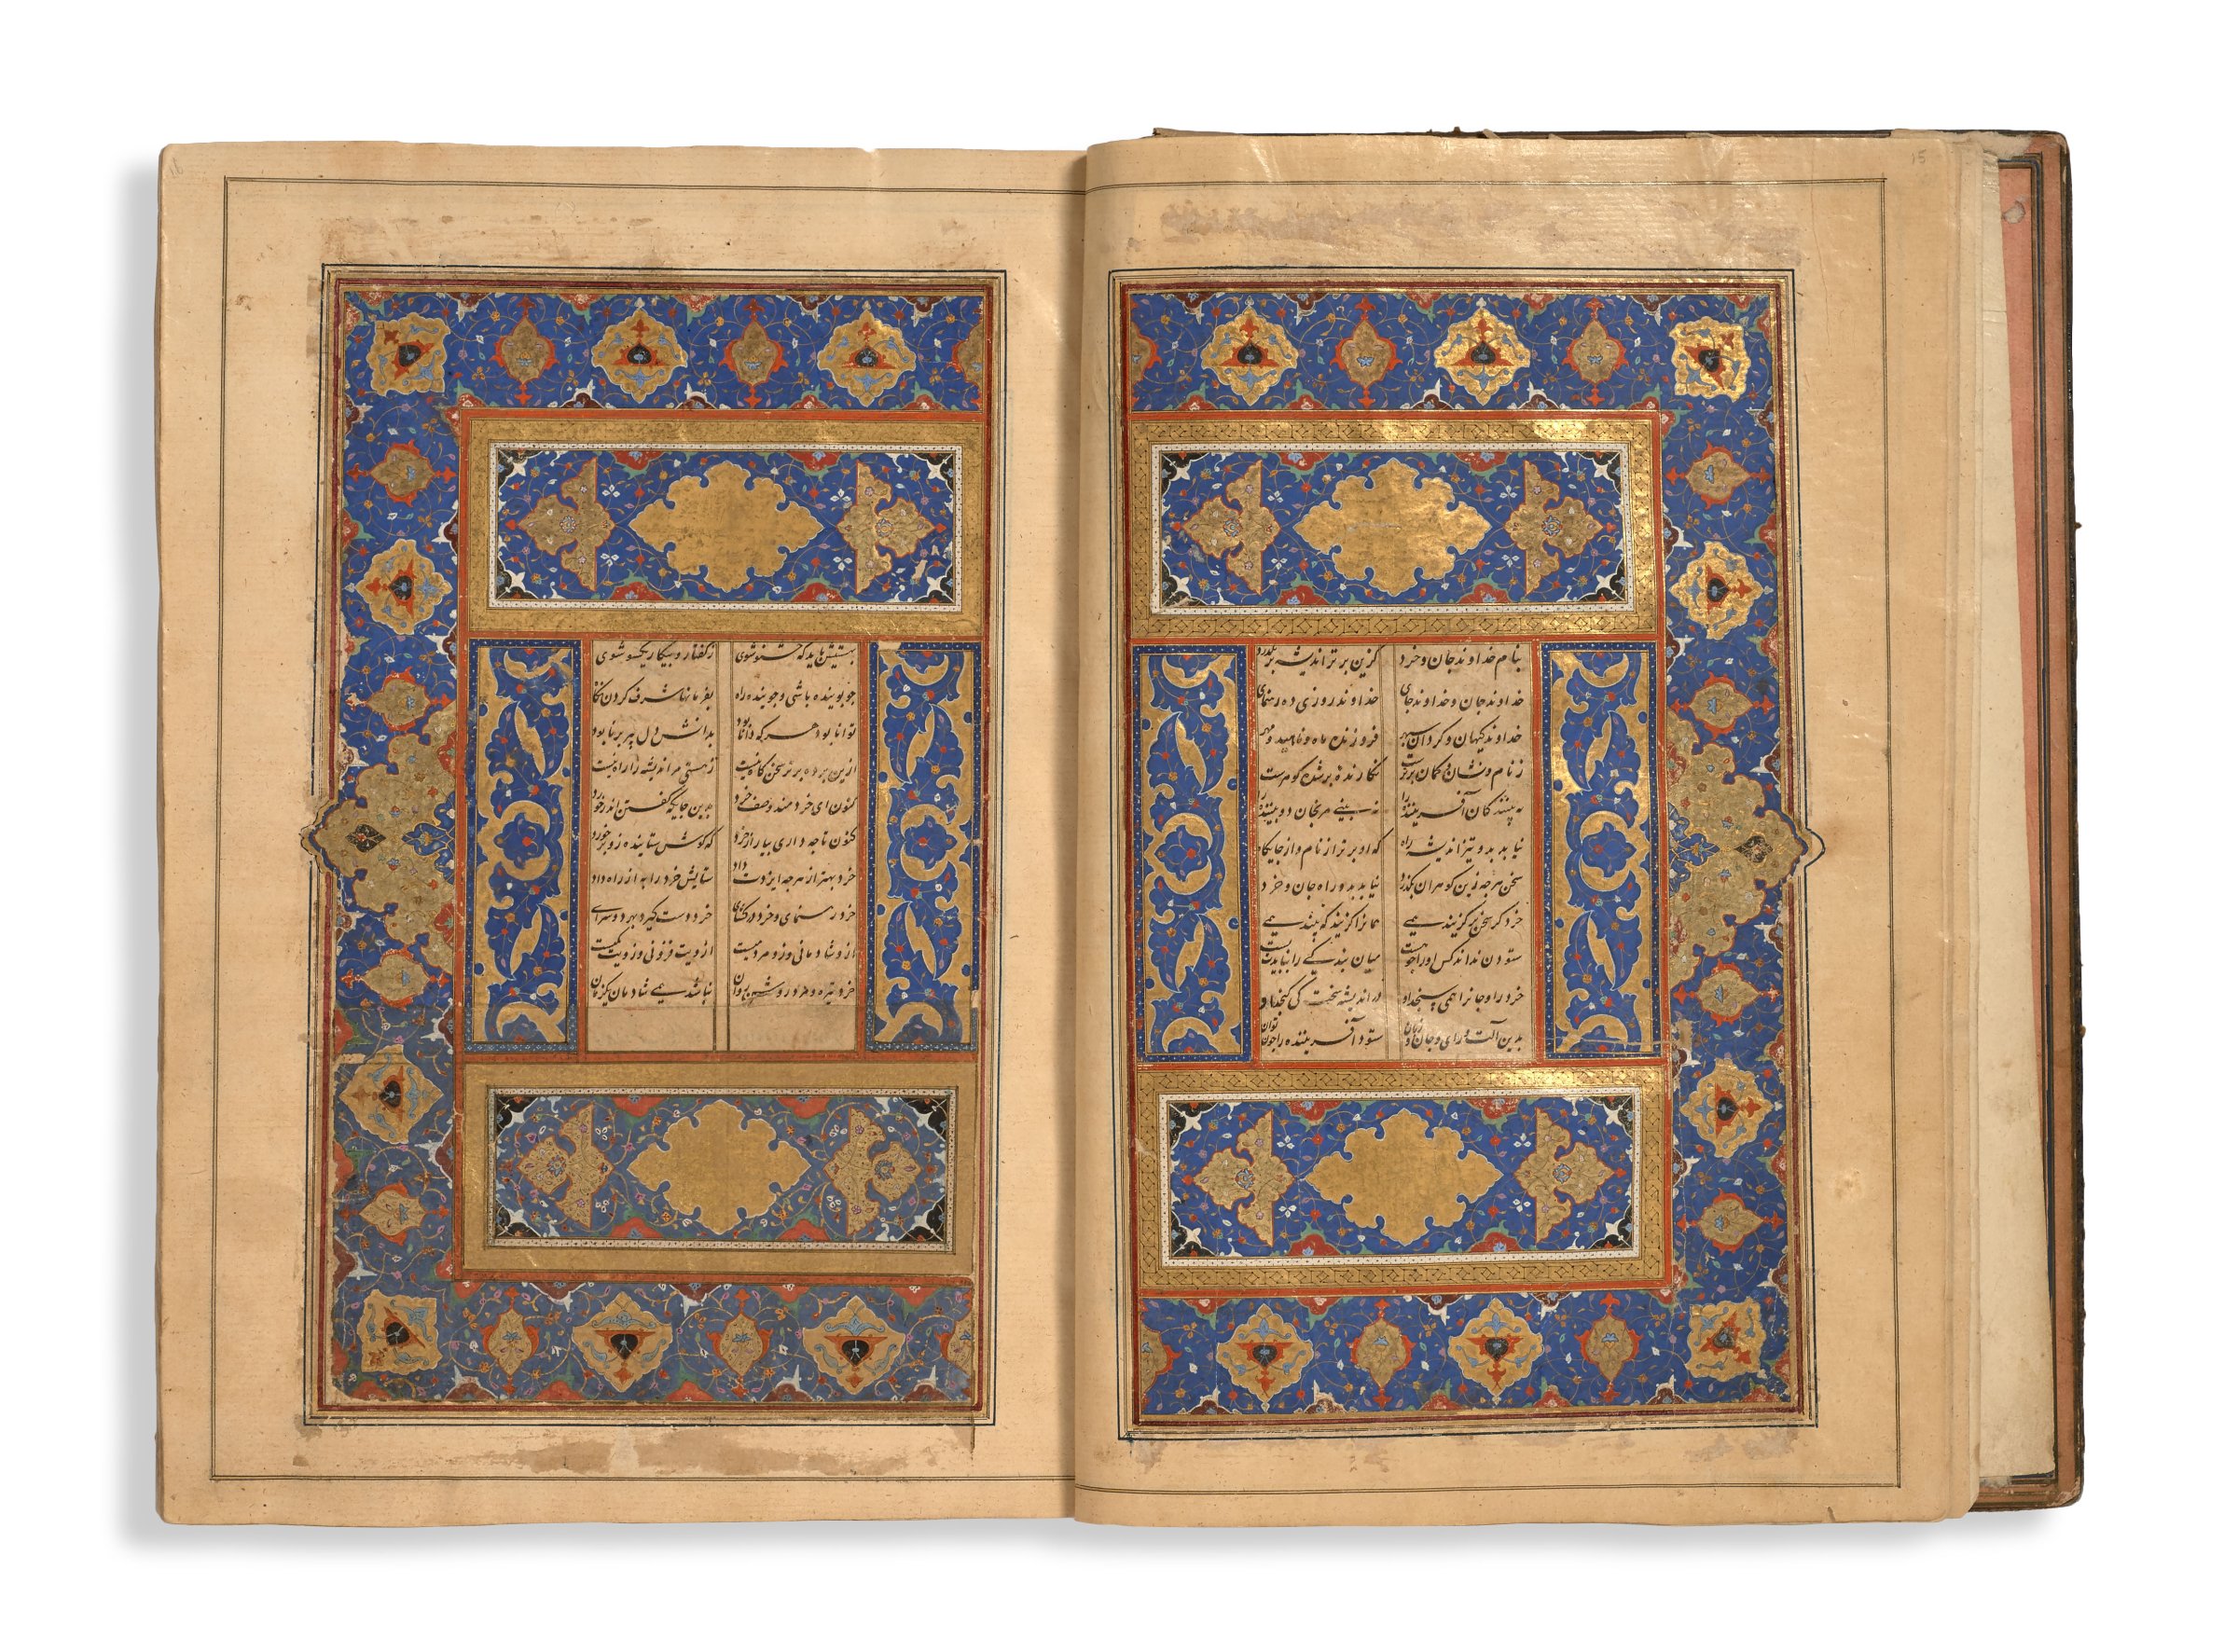 15
بنام خداوند جان و خرد کزین برتر اندیشه بر نگذرد
خداوند جان و خداوند جای خداوند روزی ده رهنمای
خداوند کیهان و گردان سپهر فروزنده ماه و ناهید و مهر
ز نام و نشان و گمان برترست نگارنده بر شده گوهرست
به بینندگان آفریننده را نه بینی مرنجان دو بیننده را
نیابد بدو نیز اندیشه راه که او برتر از نام و از جایگاه
سخن هرچه زین گوهران بگذرد نیابد بدو راه جان و خرد
خرد گر سخن برگزیند همی همانرا گزیند که بیند همی
ستودن نداند کس او را چو هست میان بندگی را ببایدت بست
خرد را و جانرا همی سنجد او در اندیشه سخته کی گنجد او
بدین آلت و رای و جان و زبان ستود آفریننده را چون توان
16
بهستیش باید که خستو شوی ز گفتار و بیکار یکسو شوی
چو بوینده باشی و جوینده راه بفرمانها ژرف کردن نگاه
توانا بود هر که دانا بود بدانش دل پیر برنا بود
ازین پرده برتر سخن گاه نیست ز هستی مر اندیشه را راه نیست
کنون ای خردمند وصف خرد بدین جایگه گفتن اندر خورد
کنون تا چه داری بیار از خرد که گوش ستاینده زو برخورد
خرد بهتر از هرچه ایزدت داد ستایش خرد را به از راه داد
خرد رهنمای و خرد دلگشای خرد دست گیرد بهر دو سرای
ازو شادمانی وزو مردمیست ازویت فزونی وزویت کمیست
خرد تیره و مرد روشن روان نباشد همی شادمان یکزمان